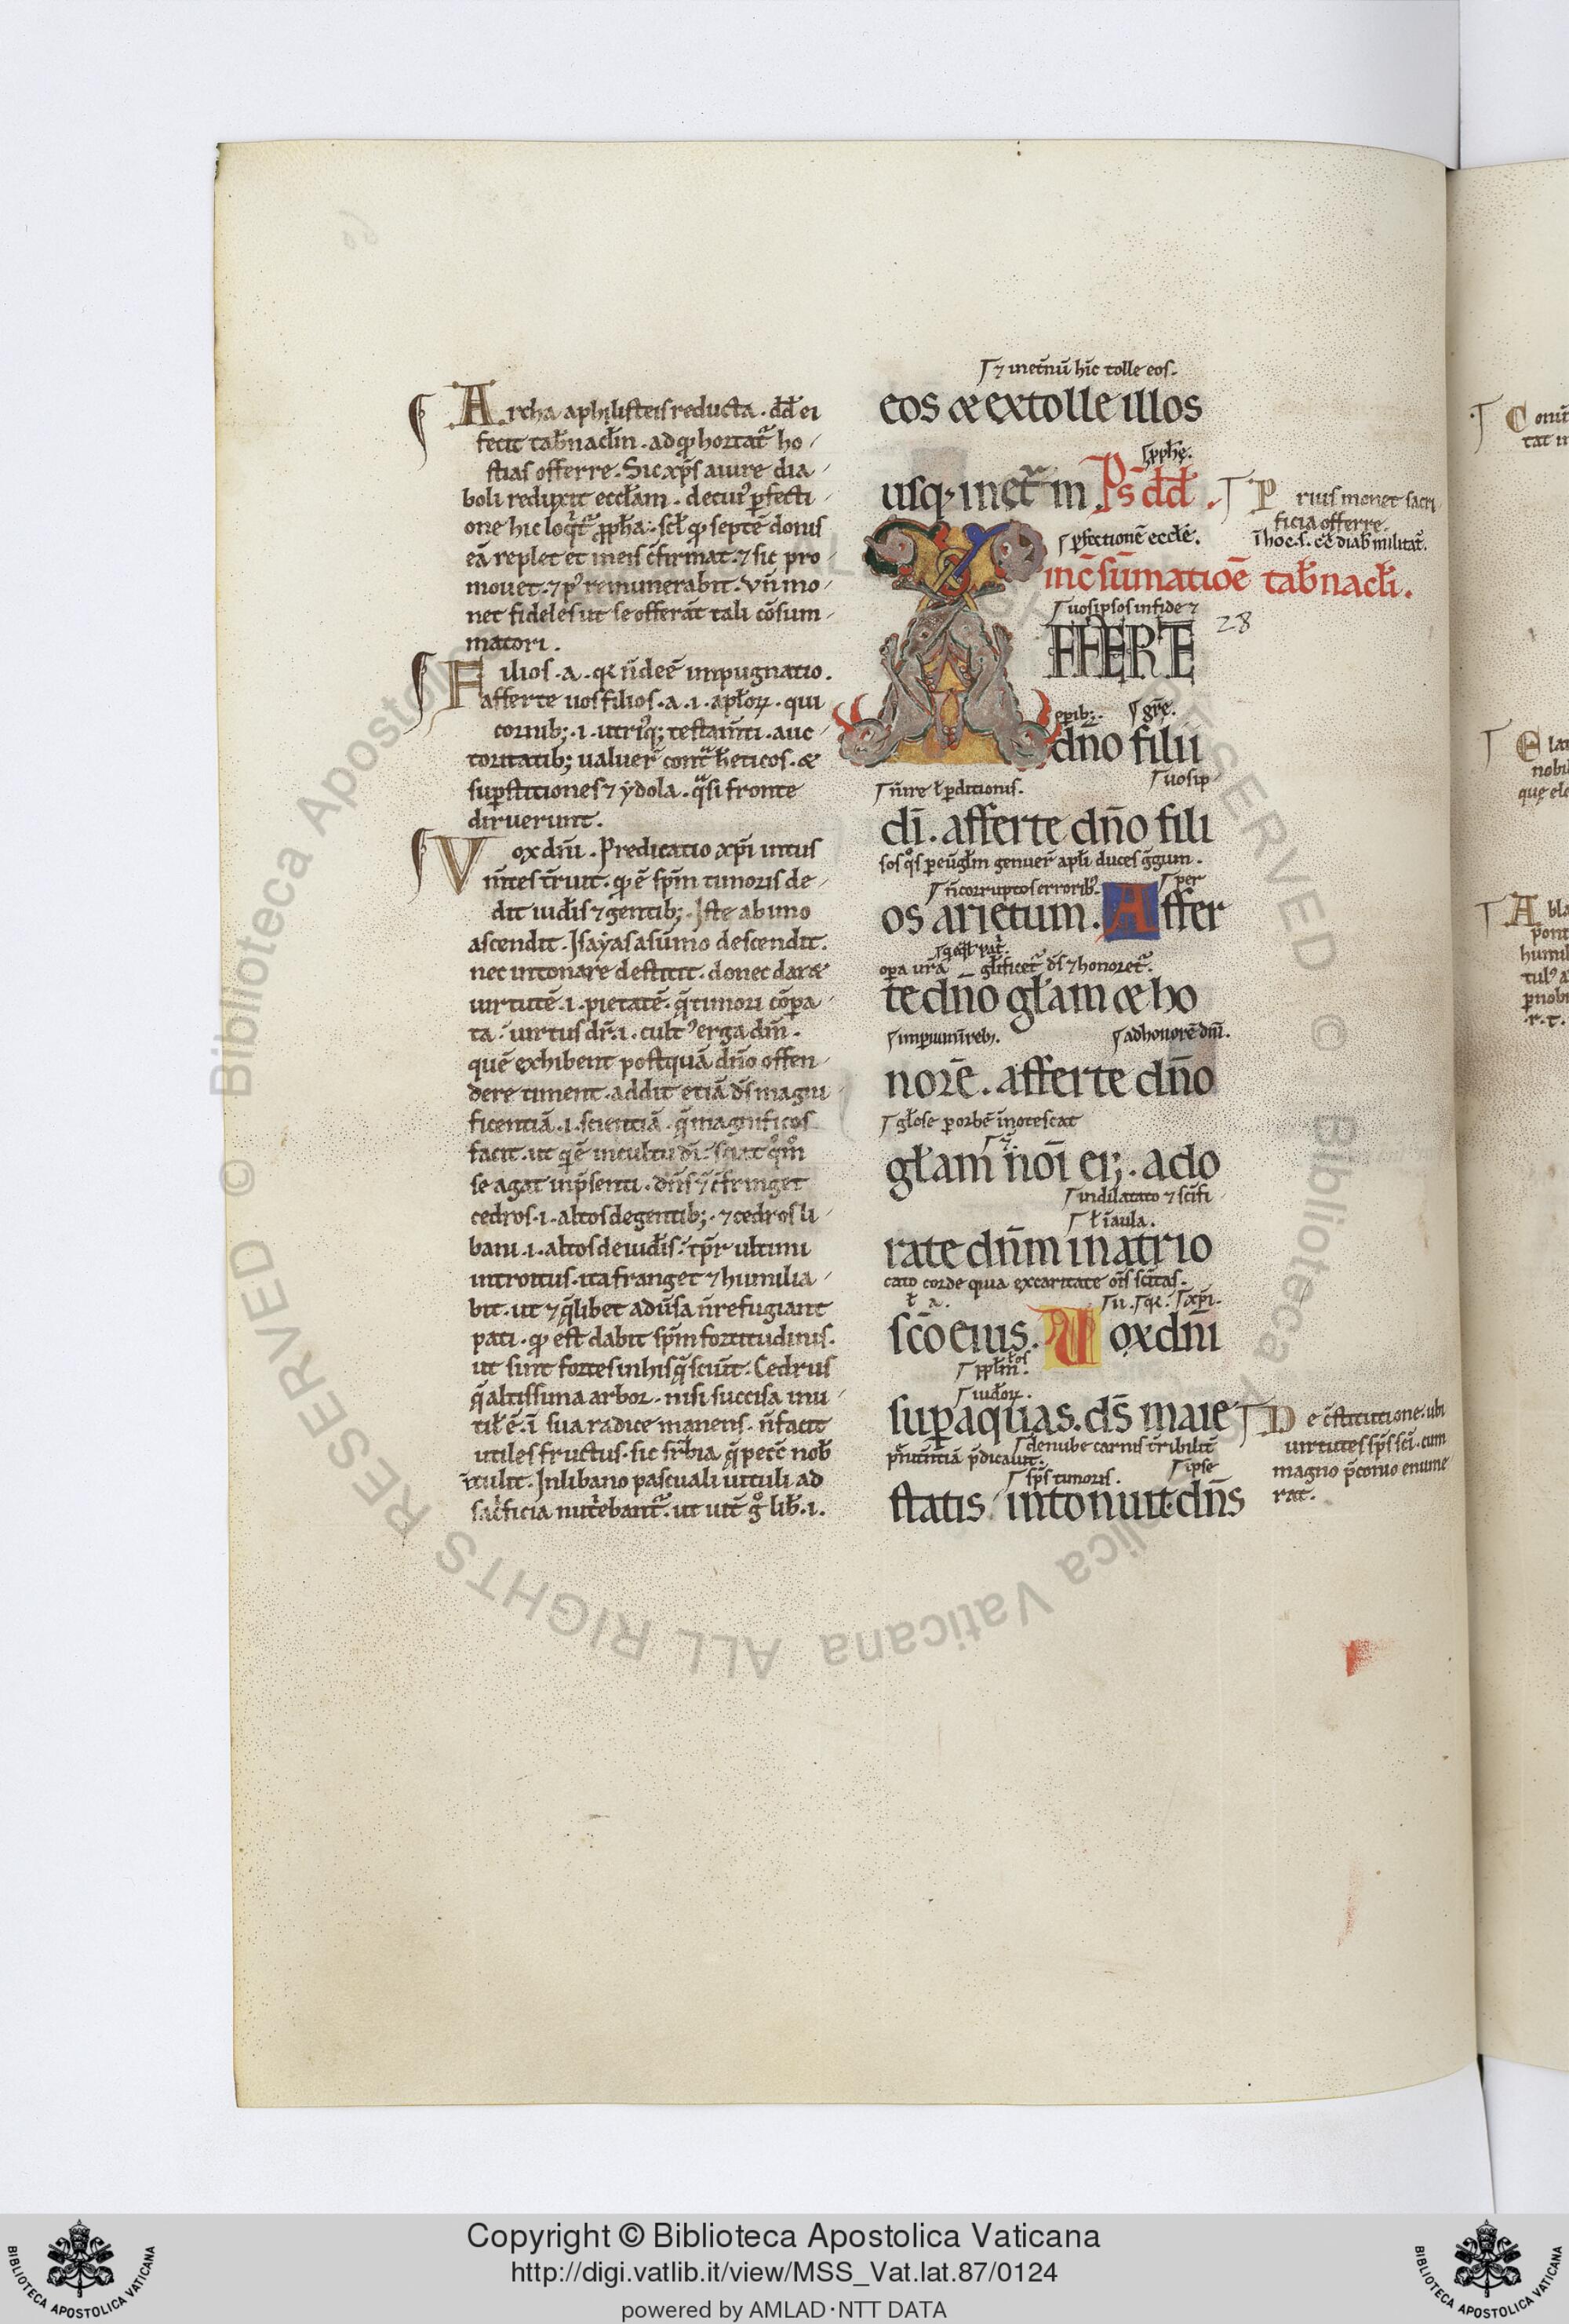 Archa aphilisteis reducta. dd̄ ei
fecit tab̄nacl̄m. ad qđ hortat᷑ ho
stias offerre. Sic xp̄s a iure dia
boli reduxit eccl̄am. de cui᷒ ꝑfecti
one hic loq̇t᷑ ꝓph̄a. scl̄. qđ septē donis
eā replet et in eis c̄firmat. ⁊ sic pro
mouet. ⁊ p᷒ remunerabit. Vn̄ mo
net fideles ut se offerāt tali cōsum
matori.
Filios .a. qr̄ n̄ deē impugnatio.
afferte uos filios .a. .i. apl̄oꝝ. qui
cornib; .i. utri᷒q; testam̄ti. auc
toritatib; ualuer̄ contᷓ h̄eticos. æ
suꝑstitiones ⁊ ydola. qᷓsi fronte
diruerunt.
Vox dn̄i. Predicatio xp̄i intus
m̄tes t̄ruit. qđ ē sp̄m timoris de
dit iud̄is ⁊ gentib;. Iste ab imo
ascendit. Isayas a sūmo descendit.
nec intonare destitit. donec daræ
uirtutē .i. pietatē. q̄ timori cōpa
ta. uirtus dr̄ .i. cult᷒ erga dm̄.
quē exhibent postquā dn̄o offen
dere timent. addit etiā dn̄s magni
ficentiā .i. scientiā. q̄ magnificos
facit. ut qͥ ē in cultu dī. sciat qͦm̊
se agat in p̄senti. dn̄s ⁊ c̄fringet
cedros .i. altos de gentib;. ⁊ cedros li
bani .i. altos de iud̄is. tp̄r ultimi
introitus. ita franget ⁊ humilia
bit. ut ⁊ q̄libet adūsa n̄ refugiant
pati. qđ est dabit sp̄m fortitudinis.
ut sint fortes in his q̄ sciūt. Cedrus
q̄ altissima arbor. nisi succisa inu
til̄ ē. ī sua radice manens. n̄ facit
utiles fructus. sic suꝑbia q̄ pecc̄ nob̄
ītulit. In libano pascuali uituli ad
sacͥficia nutͥebant᷑. ut
⁊ in et̄nū hīc tolle eos.
eos æ extolle illos
ꝓph̄ę.
usq; in et᷑m Ps̄ dd̄.
Prius monet sacri
ficia offerre.
ꝑfectionē eccl̄ę.
in c̄sūmatiōe tab̄nacl̄i.
uos ipsos in fide ⁊
AFFERTE 28
oꝑib;. gr̄ę.
dn̄o filii
uos ip
dī. afferte dn̄o fili
sos qͦs ꝑ eūgl̄m genuer̄ apl̄i duces g̅gum.
n̄ corruptos errorib᷒. per
os arietum. Affer
opa ur̄a gl̄ificet᷑ ds̄ ⁊ honoret᷑.
te dn̄o gl̄am æ ho
ad honorē dn̄i.
norē. afferte dn̄o
gl̄ose ꝑ orbē inotescat
gl̄am noī ei;. ado
in dilatato ⁊ sc̄ifi
ł ī aula.
rate dn̄m in atrio
cato corde quia ex caritate oīs sc̄itas.
sc̄o eius. Uox dn̄i
ppl̄m.
iud̄oꝝ.
suꝑ aquas. ds̄ maie
De c̄stitutione. ubi
uirtutes sp̄s sc̄i. cum
magno p̄conio enume
rat.
de nube carnis t̄ribilit̄
sp̄s timoris. ipse
statis intonuit. dn̄s
Copyright © Biblioteca Apostolica Vaticana
http://digi.vatlib.it/view/MSS_Vat.lat.87/0124
powered by AMLAD·NTT DATA
BIBLIOTECA APOSTOLICA VATICANA
BIBLIOTECA APOSTOLICA VATICANA
© Biblioteca Apostolica Vaticana ALL RIGHTS RESERVED